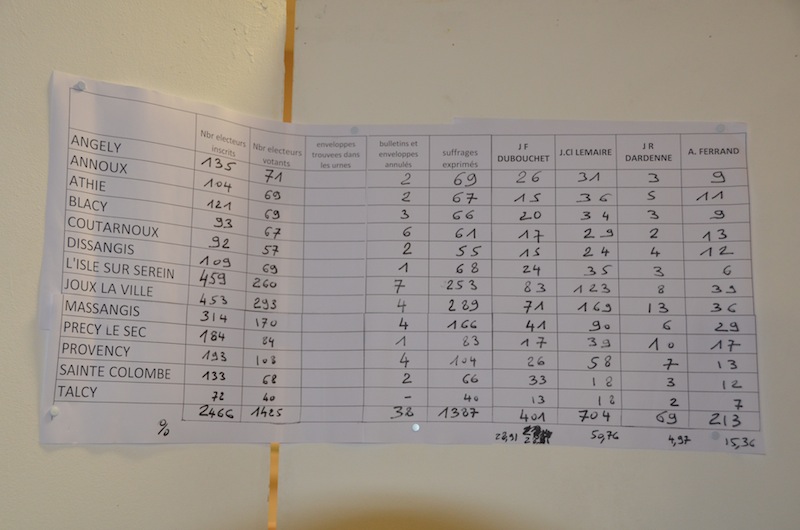 Nbr electeurs inscrits Nbr electeurs votants enveloppes trouvees dans les urnes bulletins et enveloppes annulés suffrages exprimés J F DUBOUCHET J.Cl LEMAIRE J R DARDENNE A. FERRAND
ANGELY 135 71 2 69 26 31 3 9
ANNOUX 104 69 2 67 15 36 5 11
ATHIE 121 69 3 66 20 34 3 9
BLACY 93 67 6 61 17 29 2 13
COUTARNOUX 92 57 2 55 15 24 4 12
DISSANGIS 109 69 1 68 24 35 3 6
L'ISLE SUR SEREIN 459 260 7 253 83 123 8 39
JOUX LA VILLE 453 293 4 289 71 169 13 36
MASSANGIS 314 170 4 166 41 90 6 29
PRECY LE SEC 184 84 1 83 17 39 10 17
PROVENCY 193 108 4 104 26 58 7 13
SAINTE COLOMBE 133 68 2 66 33 18 3 12
TALCY 72 40 - 40 13 18 2 7
2466 1425 38 1387 401 704 69 213
% 28,91 50,76 4,97 15,36